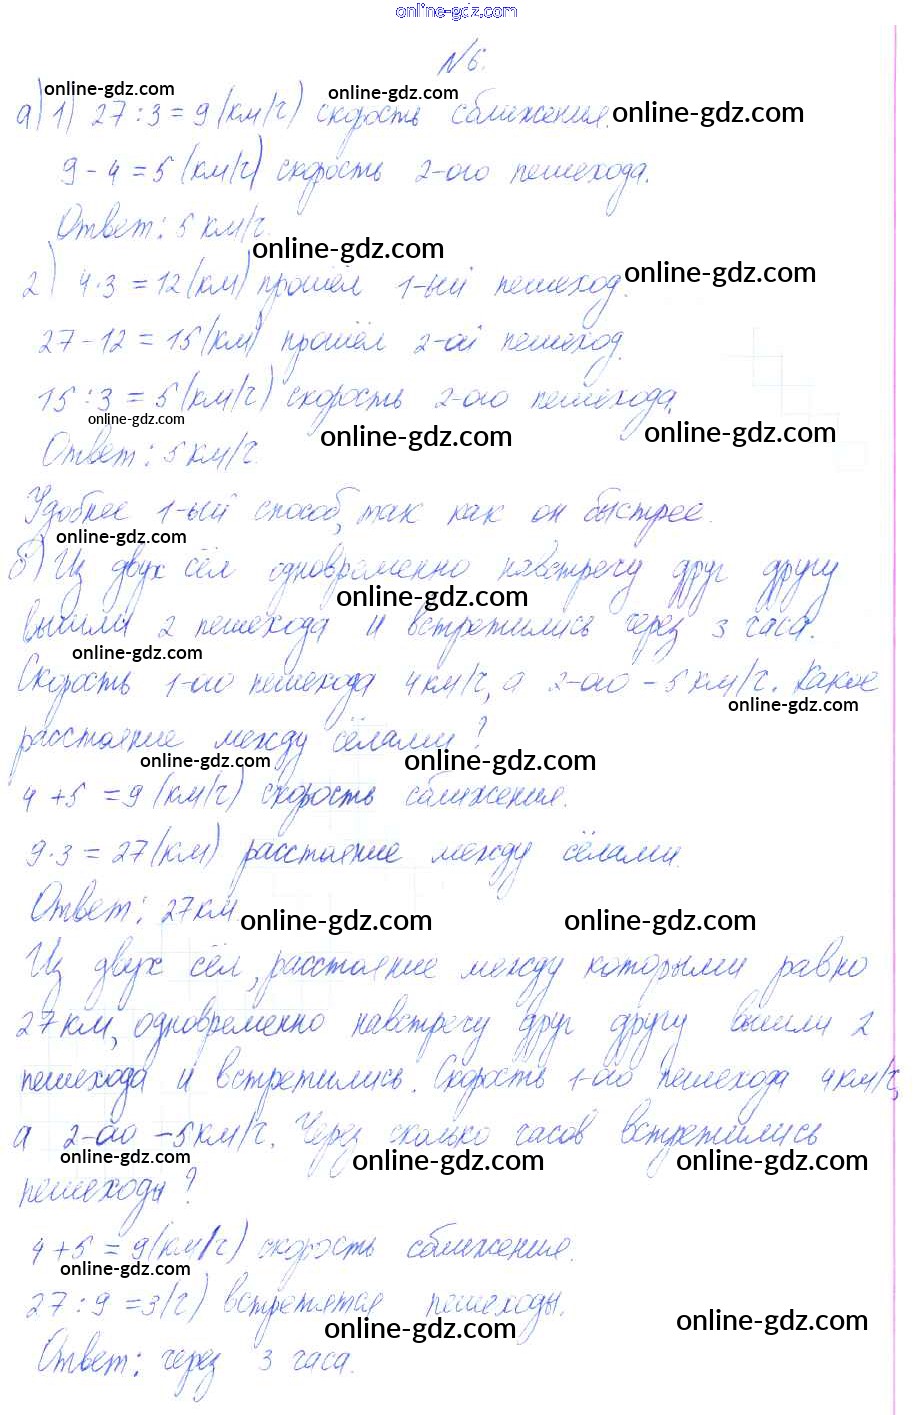 online-gdz.com
№6.
online-gdz.com online-gdz.com
а) 1) 27 : 3 = 9 (км/ч) скорость сближения. online-gdz.com
9 - 4 = 5 (км/ч) скорость 2-ого пешехода.
Ответ: 5 км/ч.
online-gdz.com online-gdz.com
2) 4·3 = 12 (км) прошёл 1-ый пешеход.
27 - 12 = 15 (км) прошёл 2-ой пешеход.
15 : 3 = 5 (км/ч) скорость 2-ого пешехода.
online-gdz.com online-gdz.com online-gdz.com
Ответ: 5 км/ч.
Удобнее 1-ый способ, так как он быстрее.
online-gdz.com
б) Из двух сёл одновременно навстречу друг другу
online-gdz.com
вышли 2 пешехода и встретились через 3 часа.
online-gdz.com
Скорость 1-ого пешехода 4 км/ч, а 2-ого - 5 км/ч. Какое
online-gdz.com
расстояние между сёлами?
online-gdz.com online-gdz.com
4 + 5 = 9 (км/ч) скорость сближения.
9·3 = 27 (км) расстояние между сёлами.
Ответ: 27 км
online-gdz.com online-gdz.com
Из двух сёл, расстояние между которыми равно
27 км, одновременно навстречу друг другу вышли 2
пешехода и встретились. Скорость 1-ого пешехода 4 км/ч,
а 2-ого - 5 км/ч. Через сколько часов встретились
online-gdz.com online-gdz.com online-gdz.com
пешеходы?
4 + 5 = 9 (км/ч) скорость сближения.
online-gdz.com
27 : 9 = 3 (ч) встретятся пешеходы.
online-gdz.com online-gdz.com
Ответ: через 3 часа.